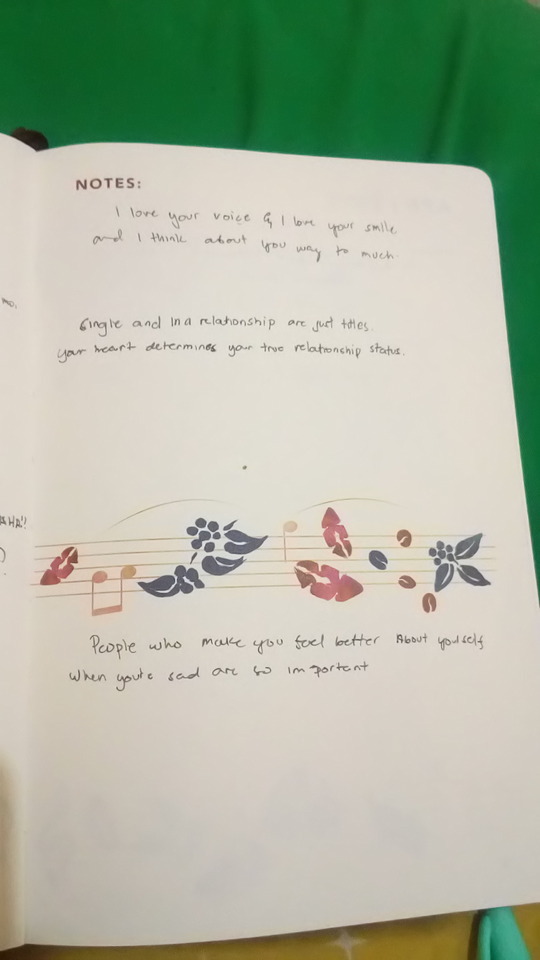 NOTES:
I love your voice & I love your smile
and I think about you way to much.
Single and In a relationship are just titles.
your heart determines your true relationship status.
People who make you feel better About youself
when you're sad are so important
mo,
AHA!!